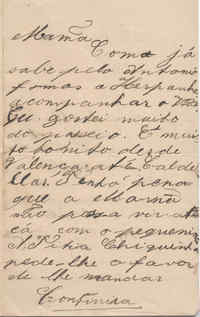 Mamã
Como já
sabe pelo Antonio
fomos a Hespanha
acompanhar o
Eu gostei muito
do passeio. É mui
to bonito desde
Valença até Calde
llas. Tenho pena
que a Mamã
não possa vir até
cá com o pequenino
A Titia Chiquinha
pede-lhe o favor
de lhe mandar